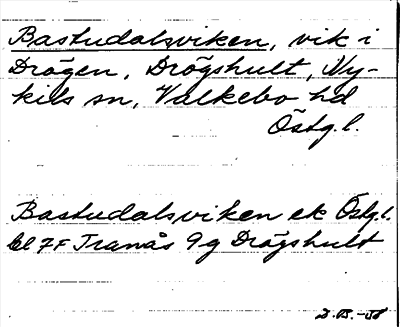 Bastudalsviken, vik i
Drögen, Drögshult, Ny-
kils sn, Valkebo hd
Östg.l.
Bastudalsviken ek Östg.l.
bl 7F Tranås 9g Drögshult